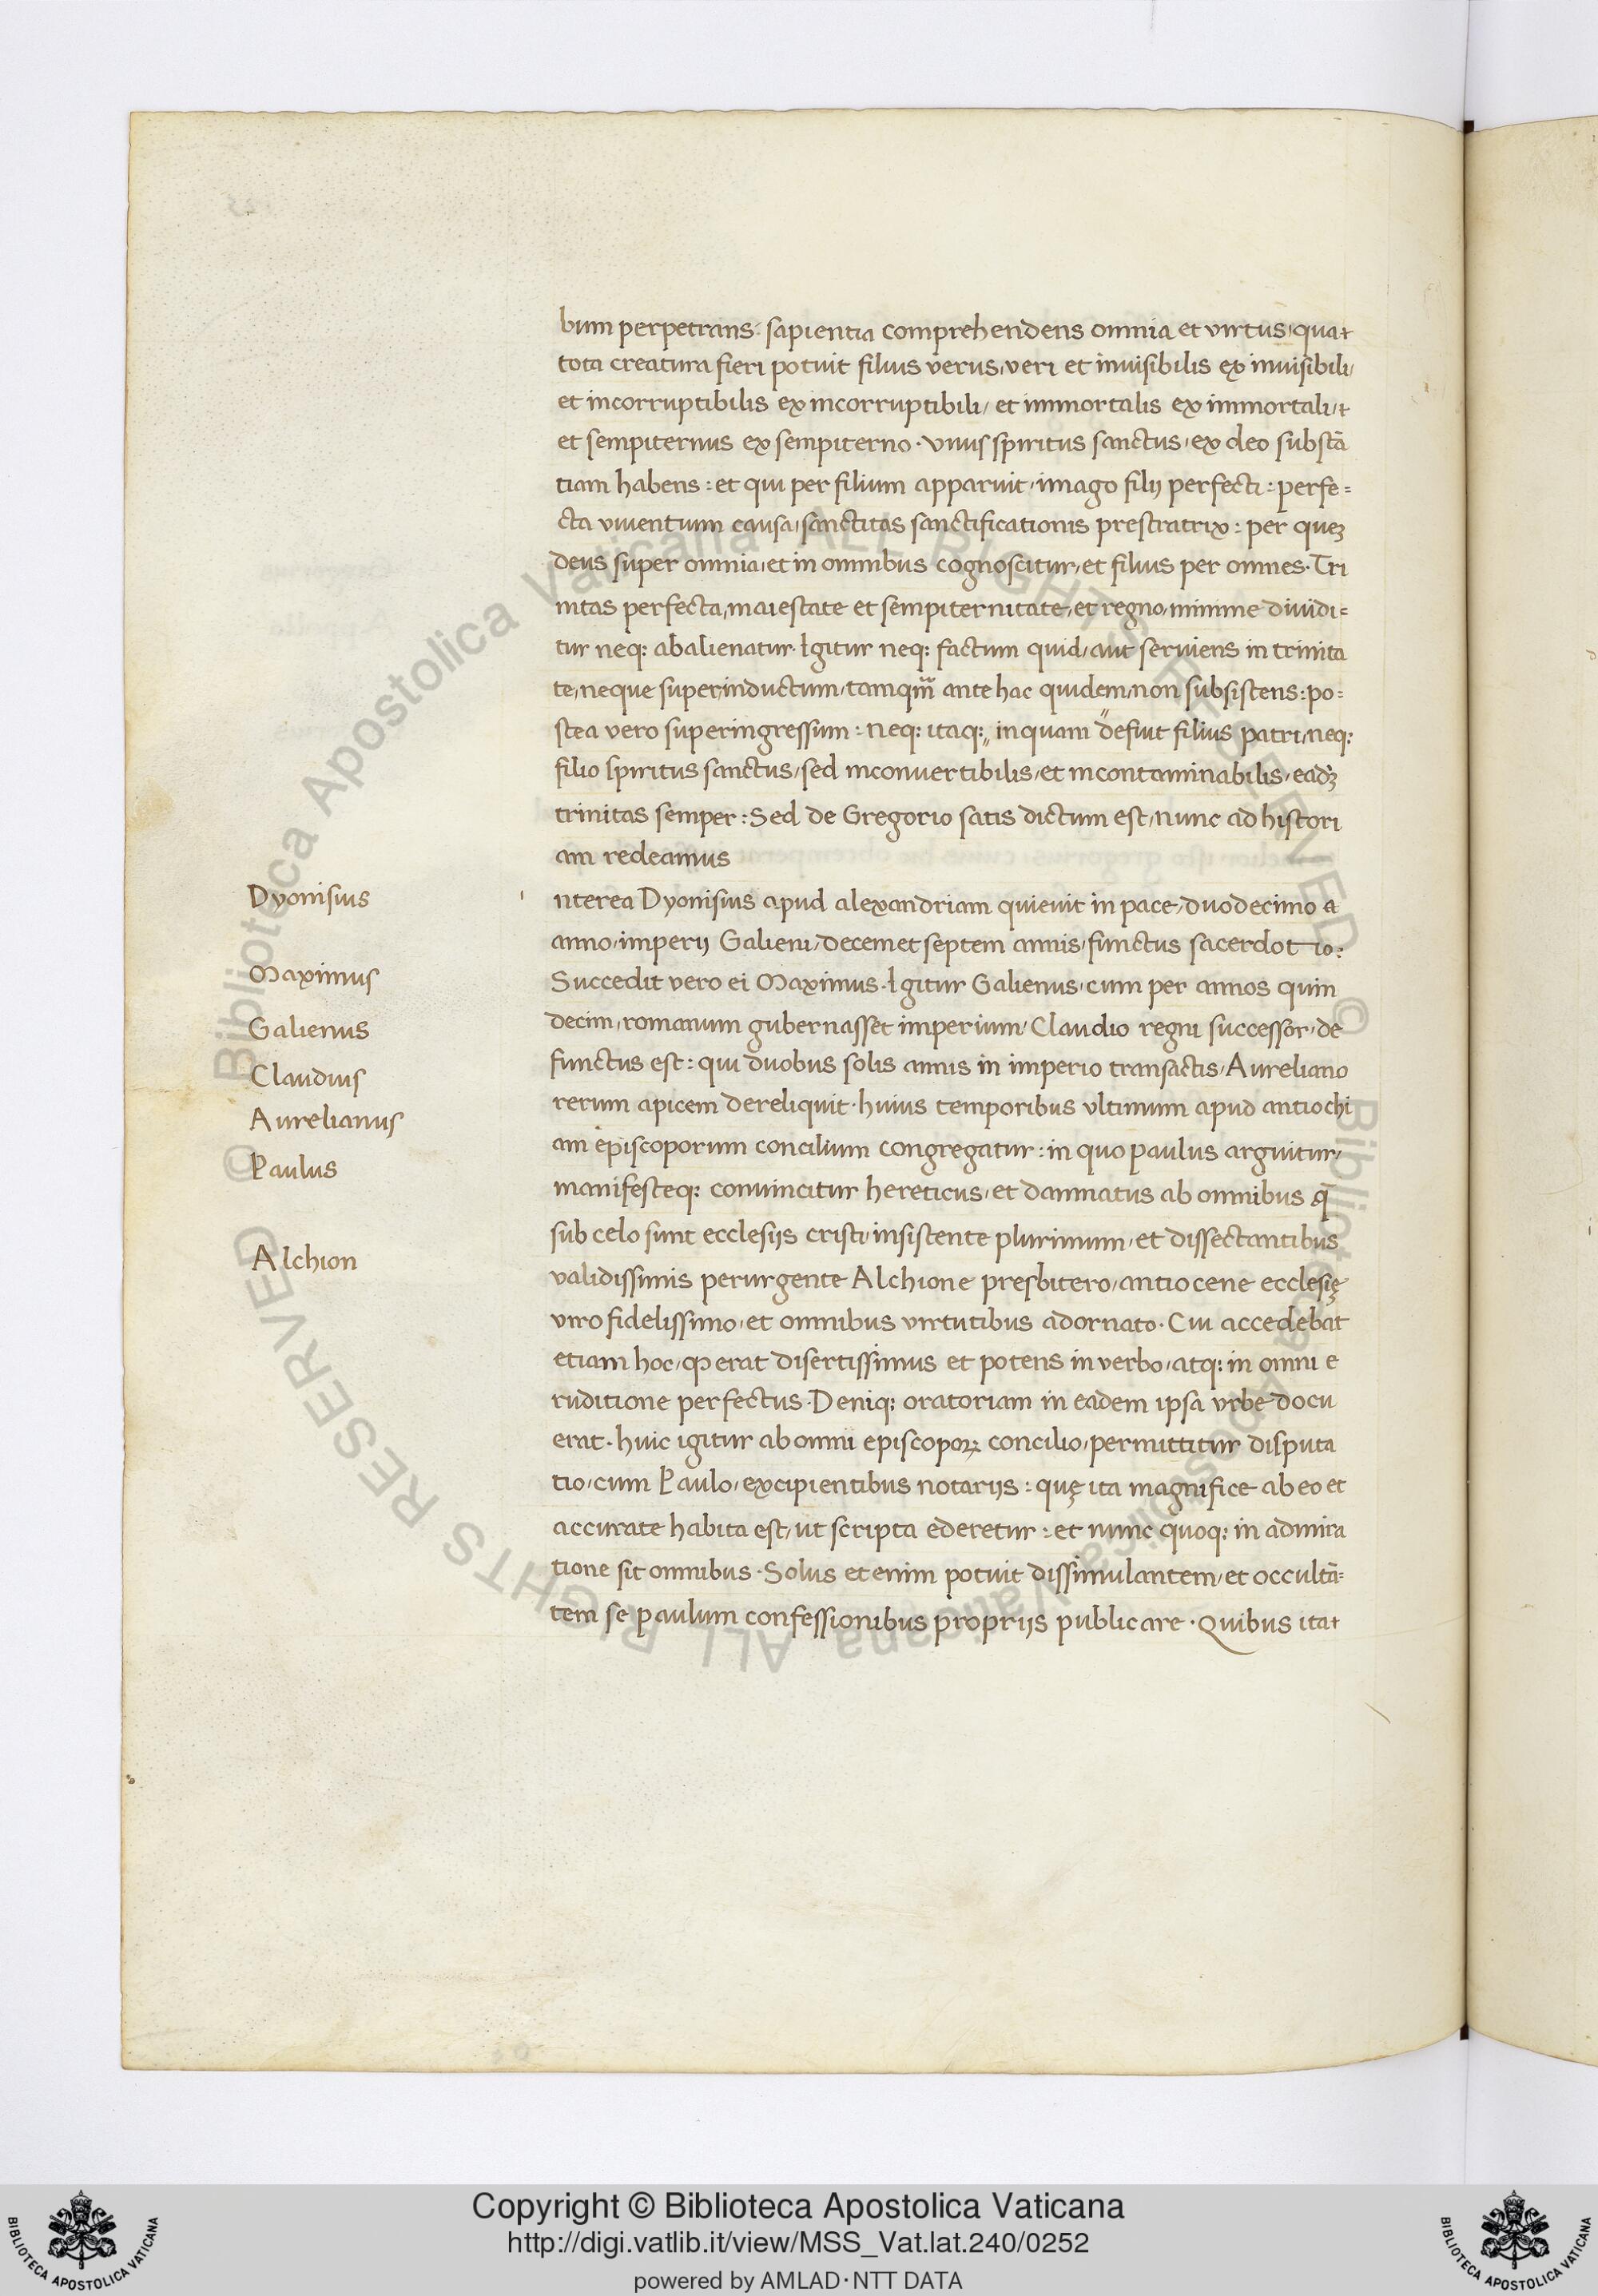 bum perpetrans: sapientia comprehendens omnia et virtus, qua
tota creatura fieri potuit filius verus, veri et inuisibilis ex inuisibili,
et incorruptibilis ex incorruptibili, et immortalis ex immortali,
et sempiternus ex sempiterno. vnus spiritus sanctus, ex deo substā
tiam habens: et qui per filium apparuit, imago filij perfecti: perfe=
cta viuentium causa, sanctitas sanctificationis prestratrix: per quez
deus super omnia, et in omnibus cognoscitur, et filius per omnes. Tri
nitas perfecta, maiestate et sempiternitate, et regno, minime diuidi=
tur neq; abalienatur. Igitur neq; factum quid, aut seruiens in trinita
te, neque superinductum, tamqm̄ ante hac quidem, non subsistens: po=
stea vero superingressum: neq; itaq; " inquam " defuit filius patri, neq;
filio spiritus sanctus, sed inconuertibilis, et incontaminabilis, eadz
trinitas semper: Sed de Gregorio satis dictum est, nunc ad histori
am redeamus
Dyonisius
i nterea Dyonisius apud alexandriam quieuit in pace, duodecimo a
anno, imperij Galieni, decem et septem annis, functus sacerdotio:
Maximus
Succedit vero ei Maximus. Igitur Galienus, cum per annos quin
Galienus
decim, romanum gubernasset imperium, Claudio regni successor, de
Claudius
functus est: qui duobus solis annis in imperio transactis, Aureliano
Aurelianus
rerum apicem dereliquit. huius temporibus vltimum apud antiochi
am episcoporum concilium congregatur: in quo paulus arguitur,
Paulus
manifesteq; conuincitur hereticus, et damnatus ab omnibus q̄
sub celo sunt ecclesijs cristi, insistente plurimum, et dissectantibus
Alchion
validissimis perurgente Alchione presbitero, antiocene ecclesię
viro fidelissimo, et omnibus virtutibus adornato. Cui accedebat
etiam hoc, ꝙ erat disertissimus et potens in verbo, atq; in omni e
ruditione perfectus. Deniq; oratoriam in eadem ipsa vrbe docu
erat. huic igitur ab omni episcopoꝝ concilio, permittitur disputa
tio, cum Paulo, excipientibus notarijs: quę ita magnifice ab eo et
accurate habita est, ut scripta ederetur: et nunc quoq; in admira
tione sit omnibus. Solus et enim potuit dissimulantem, et occultā=
tem se paulum confessionibus proprijs publicare. Quibus ita
Copyright © Biblioteca Apostolica Vaticana
http://digi.vatlib.it/view/MSS_Vat.lat.240/0252
powered by AMLAD·NTT DATA